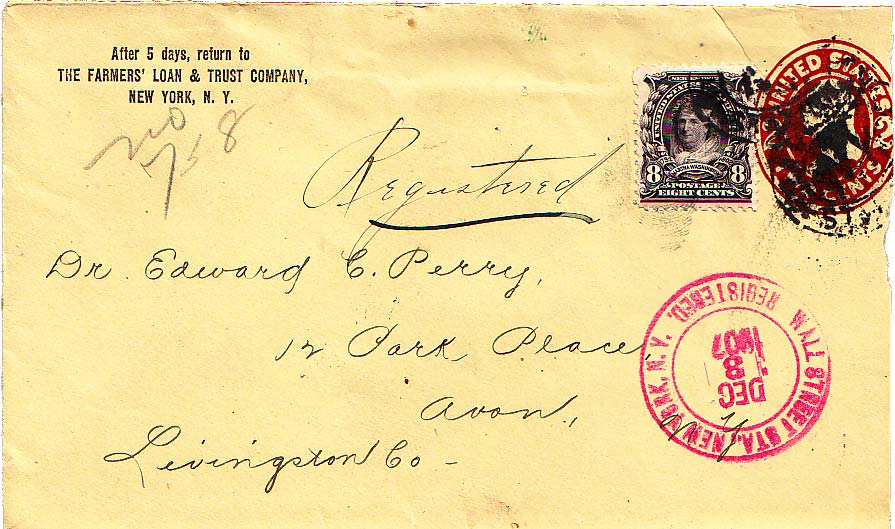 After 5 days, return to
THE FARMERS' LOAN & TRUST COMPANY,
NEW YORK, N. Y.
No
758
Registered
8 8
MARTHA WASHINGTON
POSTAGE
EIGHT CENTS
UNITED STATES
CENTS
Dr. Edward C. Perry,
12 Park Place
Avon,
N Y
Livingston Co -
WALL STREET STA. NEW YORK, N. Y. REGISTERED.
DEC
8
1907